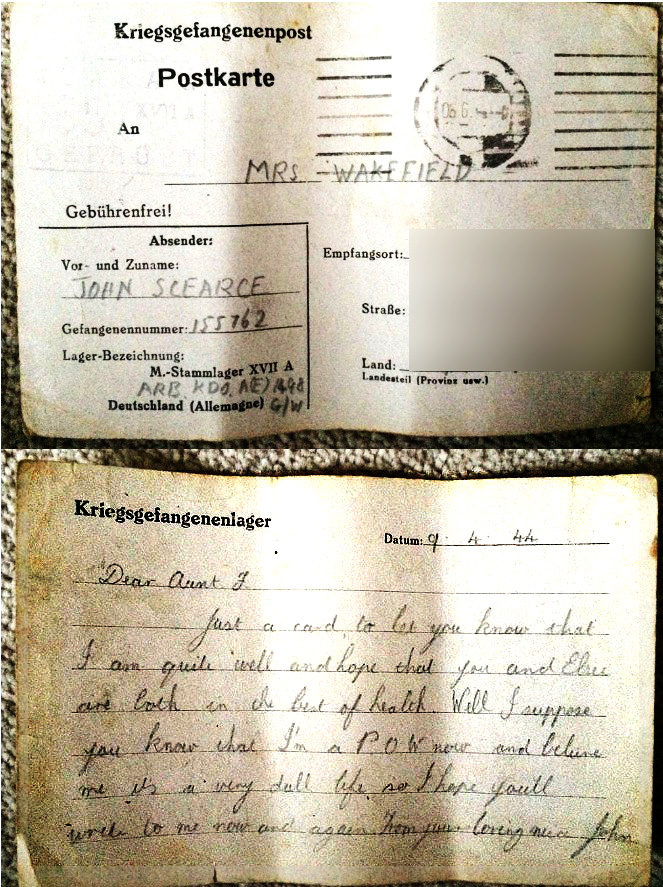 Kriegsgefangenenpost
Postkarte
An
MRS WAKEFIELD
Gebührenfrei!
Absender:
Vor- und Zuname:
JOHN SCEARCE
Gefangenennummer: 155762
Lager-Bezeichnung:
M.-Stammlager XVII A
ARB. KDO.
Deutschland (Allemagne) G/W
Empfangsort:
Straße:
Land:
Landesteil (Provinz usw.)
Kriegsgefangenenlager
Datum: 9. 4. 44
Dear Aunt F
Just a card, to let you know that
I am quite well and hope that you and Elsie
are both in the best of health. Well I suppose
you know that I'm a P O W now and believe
me its a very dull life so I hope you'll
write to me now and again From your loving John